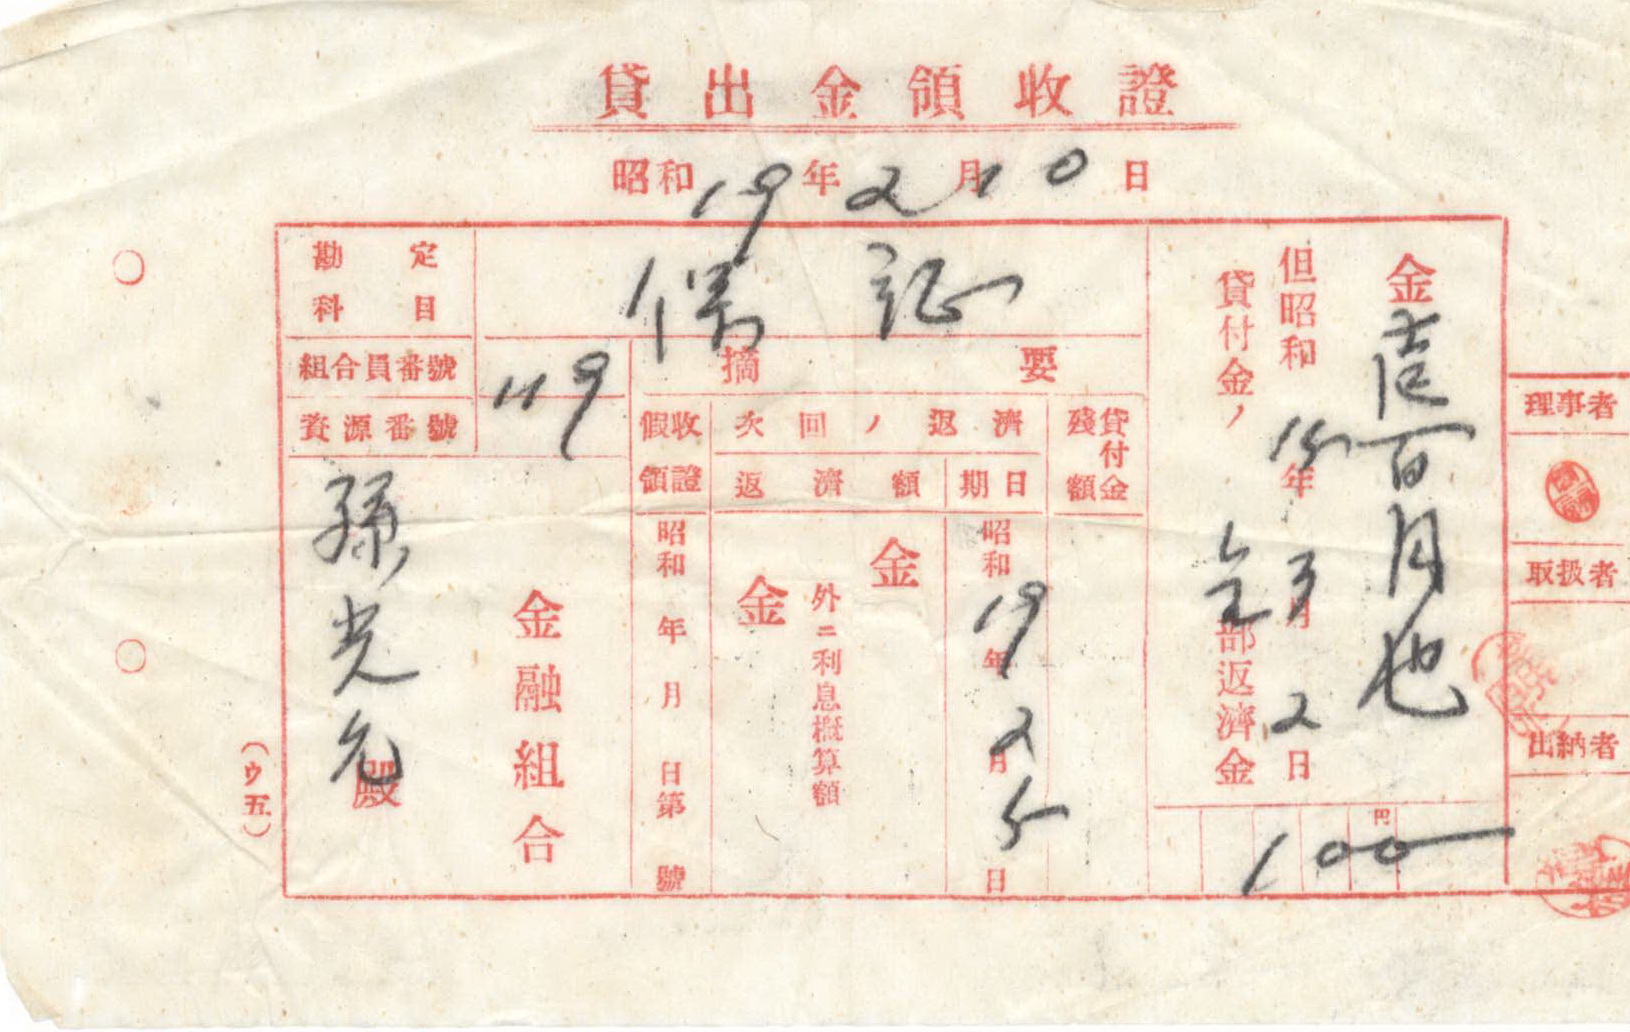 貸出金領收證
昭和19年2月10日
金壹百円也
但昭和18年3月2日
貸付金ノ全部返濟金
円
100
理事者
取扱者
出納者
勘定科目
証
組合員番號
119
資源番號
摘要
假收領證
次回ノ返濟
貸付金殘額
返濟額
期日
昭和19年2月5日
金
外ニ利息概算額
金
昭和 年 月 日第 號
金融組合
孫光允殿
(ウ五)